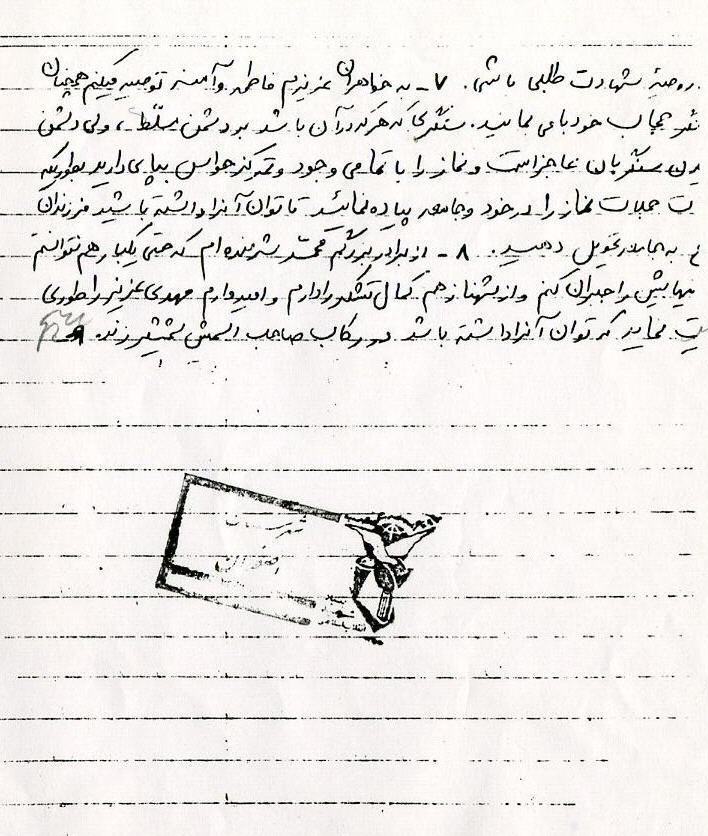 روحیهٔ شهادت طلبی باشی. ۷- به خواهران عزیزم فاطمه وآمنه توصیه میکنم همچنان
سنگر حجاب خود باقی بمانید. سنگری که هرکه در آن باشد بر دشمن مسلّط، ولی دشمن
سنگربان عاجز است ونماز را با تمامی وجود و تمرکز حواس بپای دارید بطوریکه
نماز را در خود وجامعه پیاده نمائید تا توان آنرا داشته باشید فرزندان
به جامعه تحویل دهید. ۸- از برادر بزرگم محمّد شرمنده ام که حتی یکبار هم نتوانستم
را جبران کنم واز شهناز هم کمال تشکر را دارم و امیدوارم مهدی عزیز را طوری
نماید که توان آنرا داشته باشد در رکاب صاحب شمشیر زند.
شهرستان